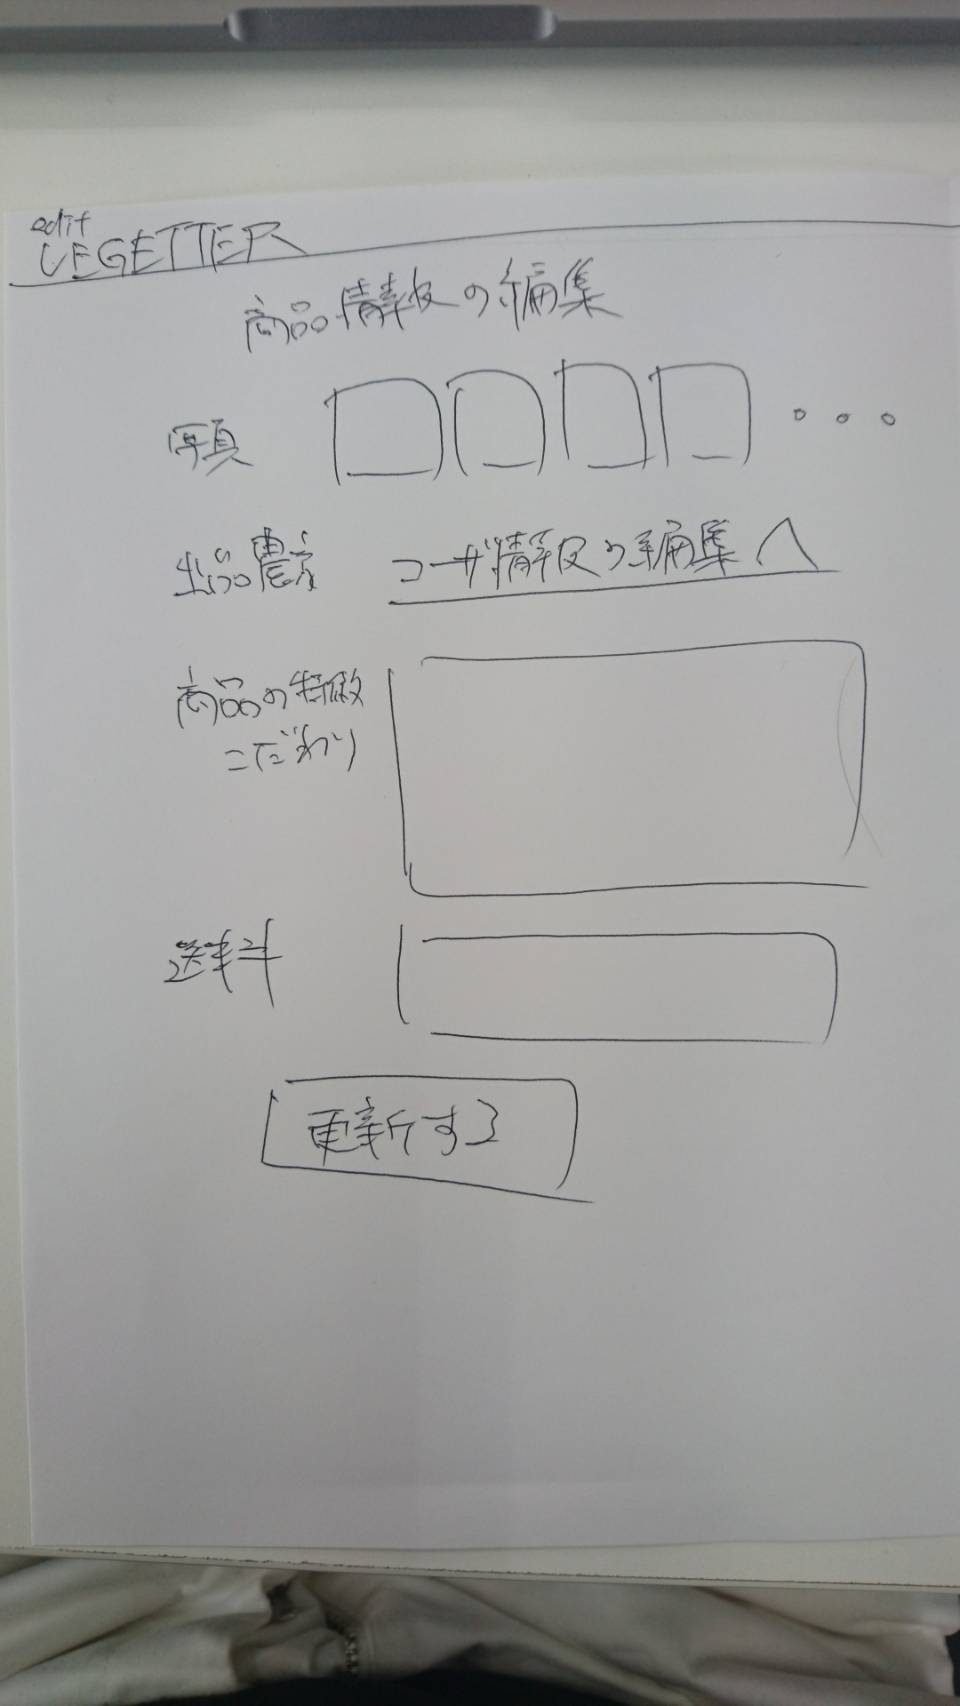 edit
VEGETTER
商品情報の編集
写真
出品農家 ユーザ情報の編集へ
商品の特徴
こだわり
送料
更新する